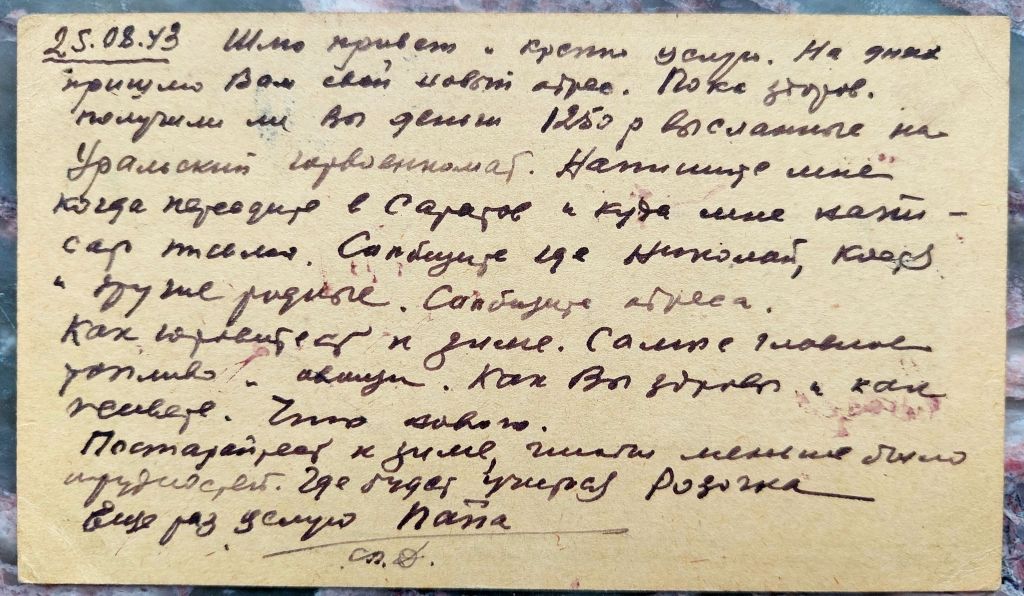 25.08.43 Шлю привет и крепко целую. На днях
пришлю Вам свой новый адрес. Пока здоров.
Получили ли Вы деньги 1250 р высланные на
Уральский горвоенкомат. Напишите мне
когда переедите в Саратов и куда мне напи-
сать письмо. Сообщите где Николай, Клава
и другие родные. Сообщите адреса.
Как готовитесь к зиме. Самое главное
топливо и овощи. Как Вы здоровы и как
живете. Что нового.
Постарайтесь к зиме, чтобы меньше было
трудностей. Где будет учиться Розочка
Еще раз целую Папа